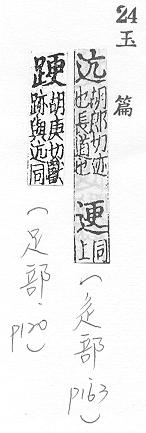 24 玉篇
迒 胡郎切迹也長道也 䢚 同上
(辵部 P163)
胡庚切獸跡與迒同
(足部. P120)